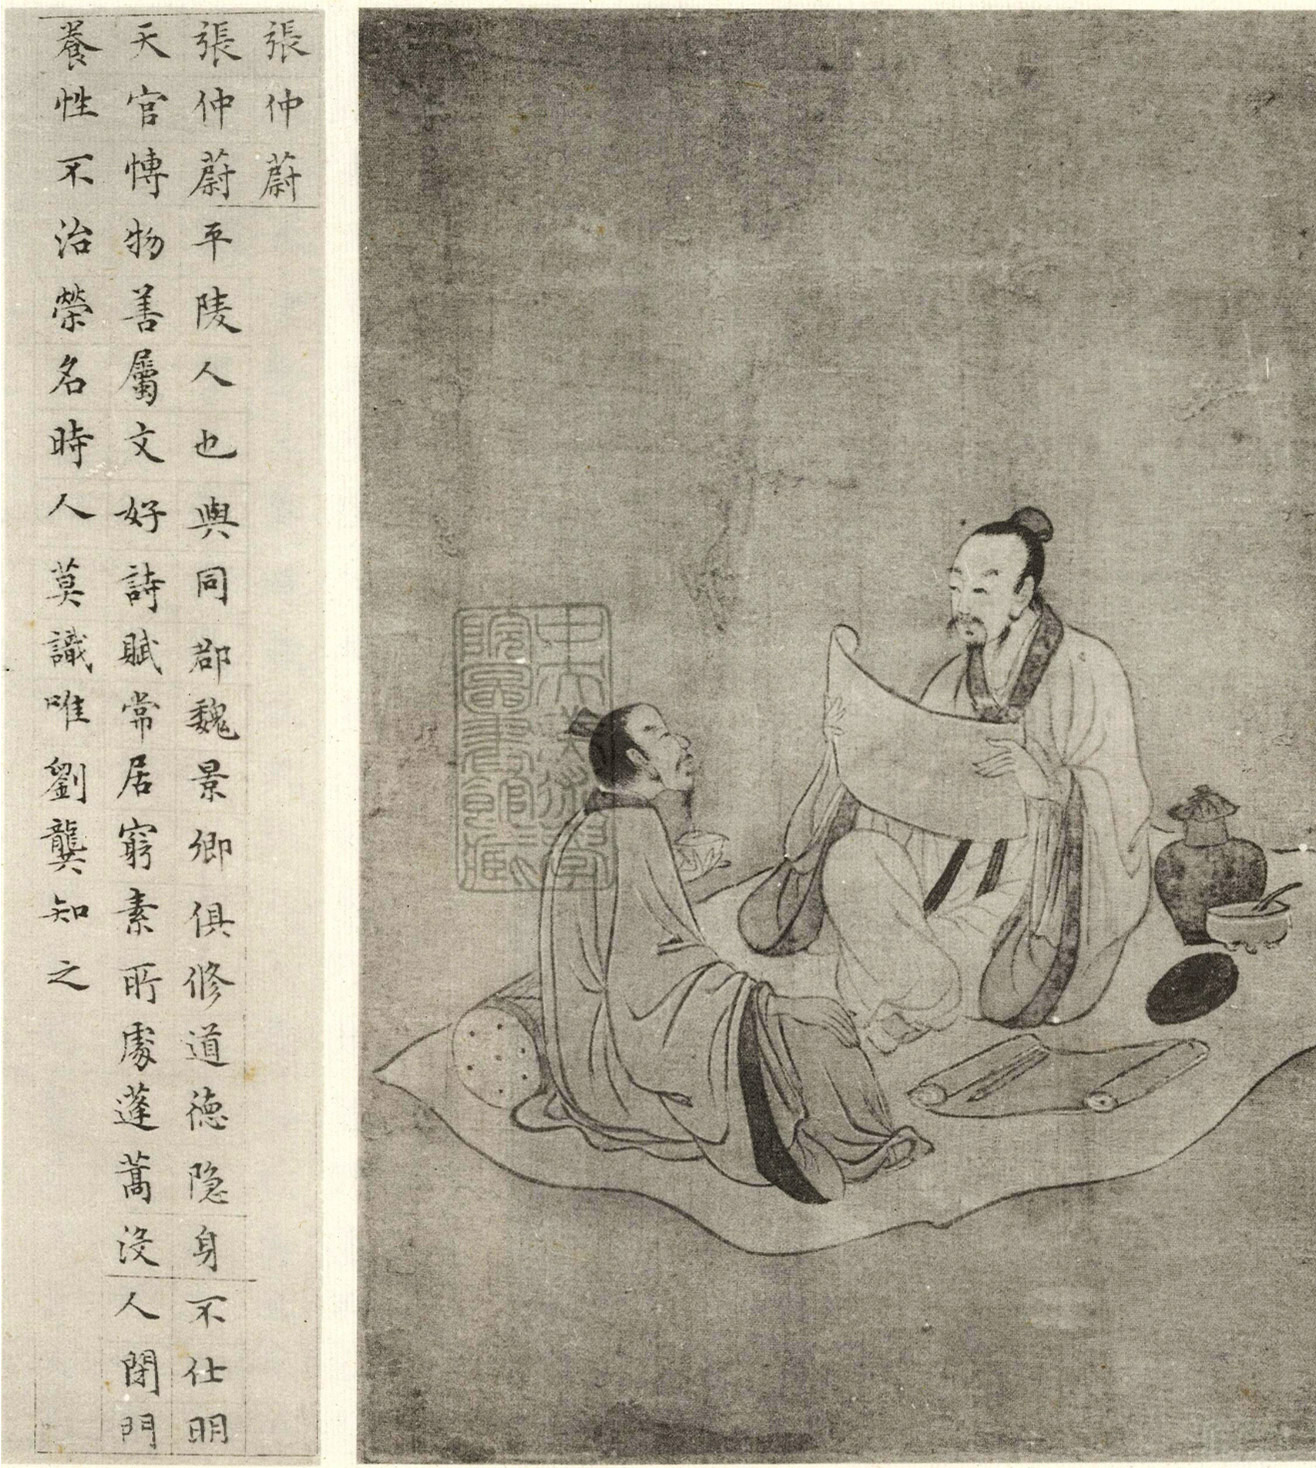 張仲蔚
張仲蔚平陵人也與同郡魏景卿俱修道德隐身不仕明
天官博物善屬文好詩賦常居窮素所處蓬蒿沒人閉門
養性不治榮名時人莫識唯劉龔知之
中央美術學
院圖書館藏